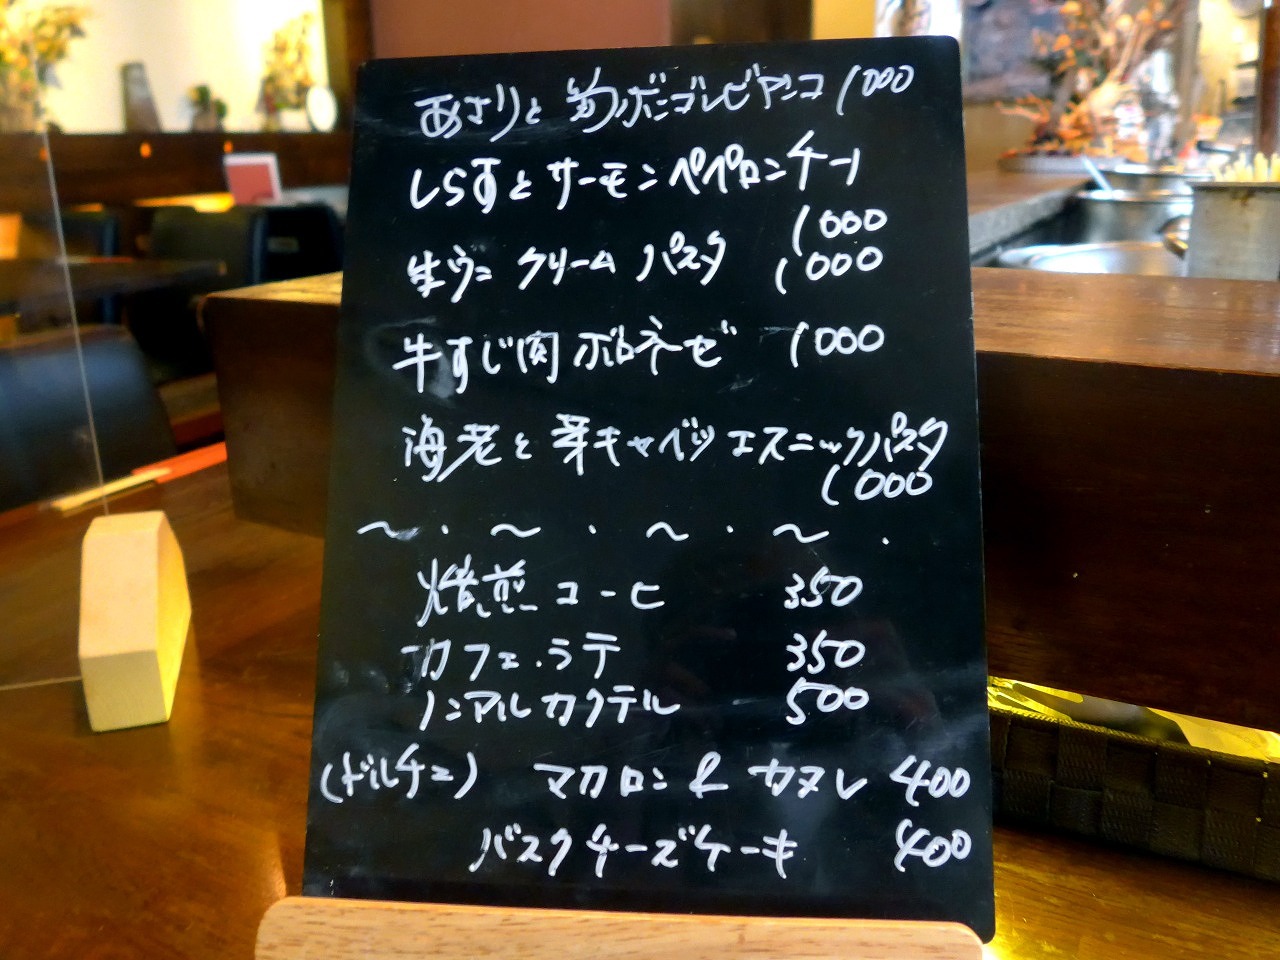 あさりと筍ボンゴレビアンコ 1000
しらすとサーモンペペロンチーノ
1000
生ウニクリームパスタ 1000
牛すじ肉ボロネーゼ 1000
海老と芽キャベツエスニックパスタ
1000
〜・〜・〜・〜・
焙煎コーヒ 350
カフェ・ラテ 350
ノンアルカクテル 500
(ドルチェ) マカロン & カヌレ 400
バスクチーズケーキ 400